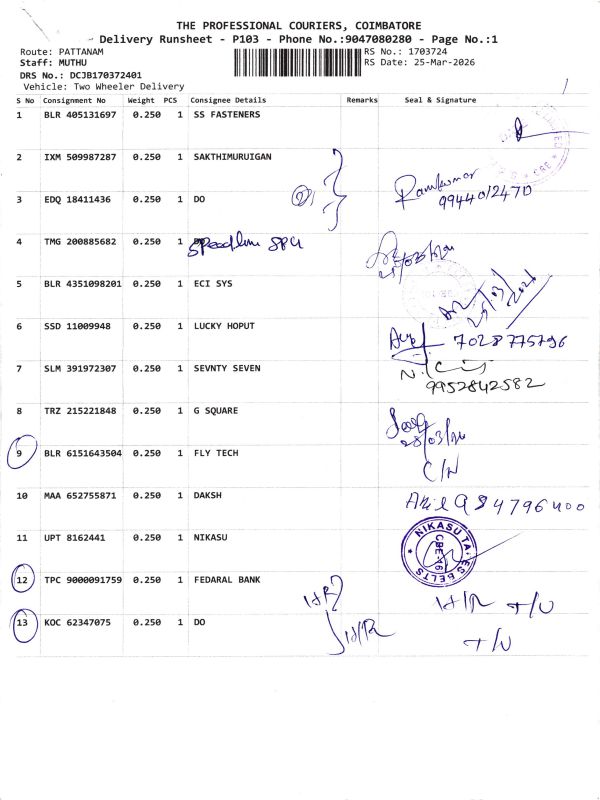 THE PROFESSIONAL COURIERS, COIMBATORE
Delivery Runsheet - P103 - Phone No.:9047080280 - Page No.:1
Route: PATTANAM
RS No.: 1703724
Staff: MUTHU
RS Date: 25-Mar-2026
DRS No.: DCJB170372401
Vehicle: Two Wheeler Delivery
S No Consignment No Weight PCS Consignee Details Remarks Seal & Signature
1 BLR 405131697 0.250 1 SS FASTENERS
2 IXM 509987287 0.250 1 SAKTHIMURUIGAN
3 EDQ 18411436 0.250 1 DO Ramkumar
9944012470
4 TMG 200885682 0.250 1
5 BLR 4351098201 0.250 1 ECI SYS
6 SSD 11009948 0.250 1 LUCKY HOPUT 7028775796
7 SLM 391972307 0.250 1 SEVNTY SEVEN
9952842582
8 TRZ 215221848 0.250 1 G SQUARE
9 BLR 6151643504 0.250 1 FLY TECH C/N
10 MAA 652755871 0.250 1 DAKSH
11 UPT 8162441 0.250 1 NIKASU NIKASU TAPES BELTS CBE-16
12 TPC 9000091759 0.250 1 FEDARAL BANK
13 KOC 62347075 0.250 1 DO